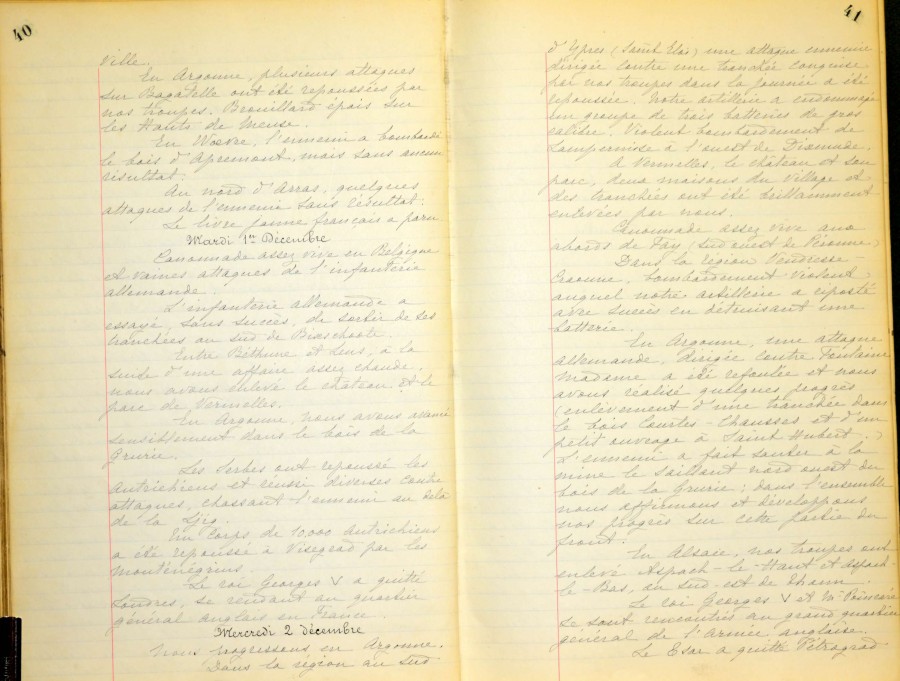 40
ville.
En Argonne, plusieurs attaques
sur Bagatelle ont été repoussées par
nos troupes. Brouillard épais sur
les Hauts de Meuse.
En Woëvre, l'ennemi a bombardé
le bois d'Apremont, mais sans aucun
résultat.
Au nord d'Arras, quelques
attaques de l'ennemi sans résultat.
Le livre jaune français a paru
Mardi 1er Décembre
Canonnade assez vive en Belgique
et vaines attaques de l'infanterie
allemande.
L'infanterie allemande a
essayé, sans succès, de sortir de ses
tranchées au sud de Bixschoote.
Entre Béthune et Lens, à la
suite d'une affaire assez chaude,
nous avons enlevé le château et le
parc de Vermelles.
En Argonne, nous avons avancé
sensiblement dans le bois de la
Grurie.
Les Serbes ont repoussé les
Autrichiens et réussi diverses contre
attaques, chassant l'ennemi au delà
de la Ljig.
Un Corps de 10.000 Autrichiens
a été repoussé à Visegrad par les
monténégrins.
Le roi Georges V a quitté
Londres, se rendant au quartier
général anglais en France.
Mercredi 2 décembre
Nous progressons en Argonne.
Dans la région au sud
41
d'Ypres (Saint Eloi) une attaque ennemie
dirigée contre une tranchée conquise
par nos troupes dans la journée a été
repoussée. Notre artillerie a endommagé
un groupe de trois batteries de gros
calibre. Violent bombardement de
Lampernisse à l'ouest de Dixmude.
A Vermelles, le château et son
parc, deux maisons du village et
des tranchées ont été brillamment
enlevées par nous.
Canonnade assez vive aux
abords de Fay (sud ouest de Péronne)
Dans la région Vendresse-
Craonne, bombardement violent,
auquel notre artillerie a riposté
avec succès en détruisant une
batterie.
En Argonne, une attaque
allemande, dirigée contre Fontaine
Madame a été refoulée et nous
avons réalisé quelques progrès
(enlèvement d'une tranchée dans
le bois Courtes-Chausses et d'un
petit ouvrage à Saint Hubert.)
L'ennemi a fait sauter à la
mine le saillant nord ouest du
bois de la Grurie; dans l'ensemble
nous affirmons et développons
nos progrès sur cette partie du
front.
En Alsace, nos troupes ont
enlevé Aspach-le-Haut et Aspach-
le-Bas, au sud-est de Thann.
Le roi Georges V et Mr Poincaré
se sont rencontrés au grand quartier
général de l'Armée anglaise.
Le Tsar a quitté Pétrograd